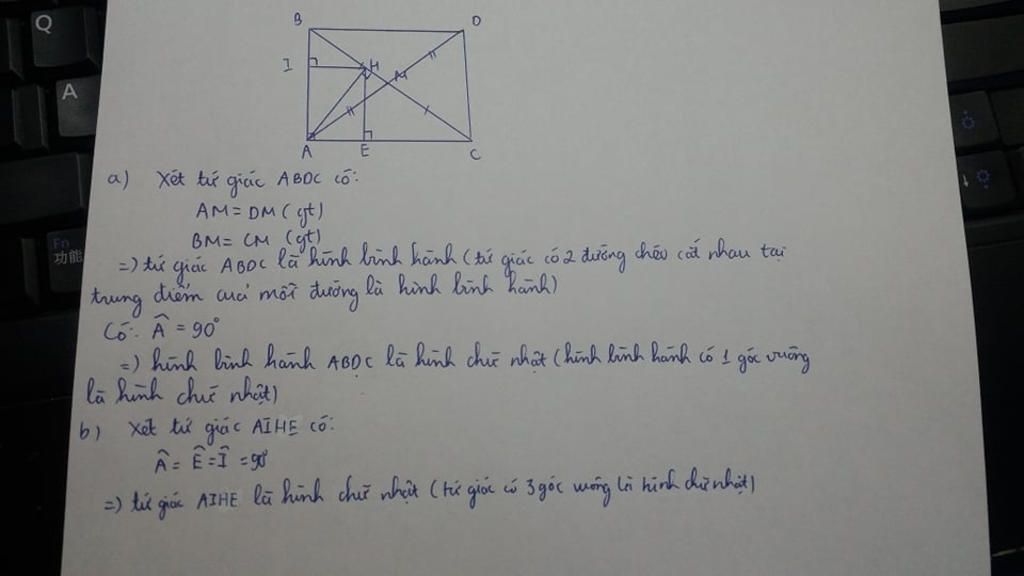 Q
A
Fn
功能
B D
I H M
A E C
a) Xét tứ giác ABDC có:
AM = DM (gt)
BM = CM (gt)
=) tứ giác ABDC là hình bình hành (tứ giác có 2 đường chéo cắt nhau tại
trung điểm của mỗi đường là hình bình hành)
Có: Â = 90°
=) hình bình hành ABDC là hình chữ nhật (hình bình hành có 1 góc vuông
là hình chữ nhật)
b) Xét tứ giác AIHE có:
Â = Ê = Î = 90°
=) tứ giác AIHE là hình chữ nhật (tứ giác có 3 góc vuông là hình chữ nhật)